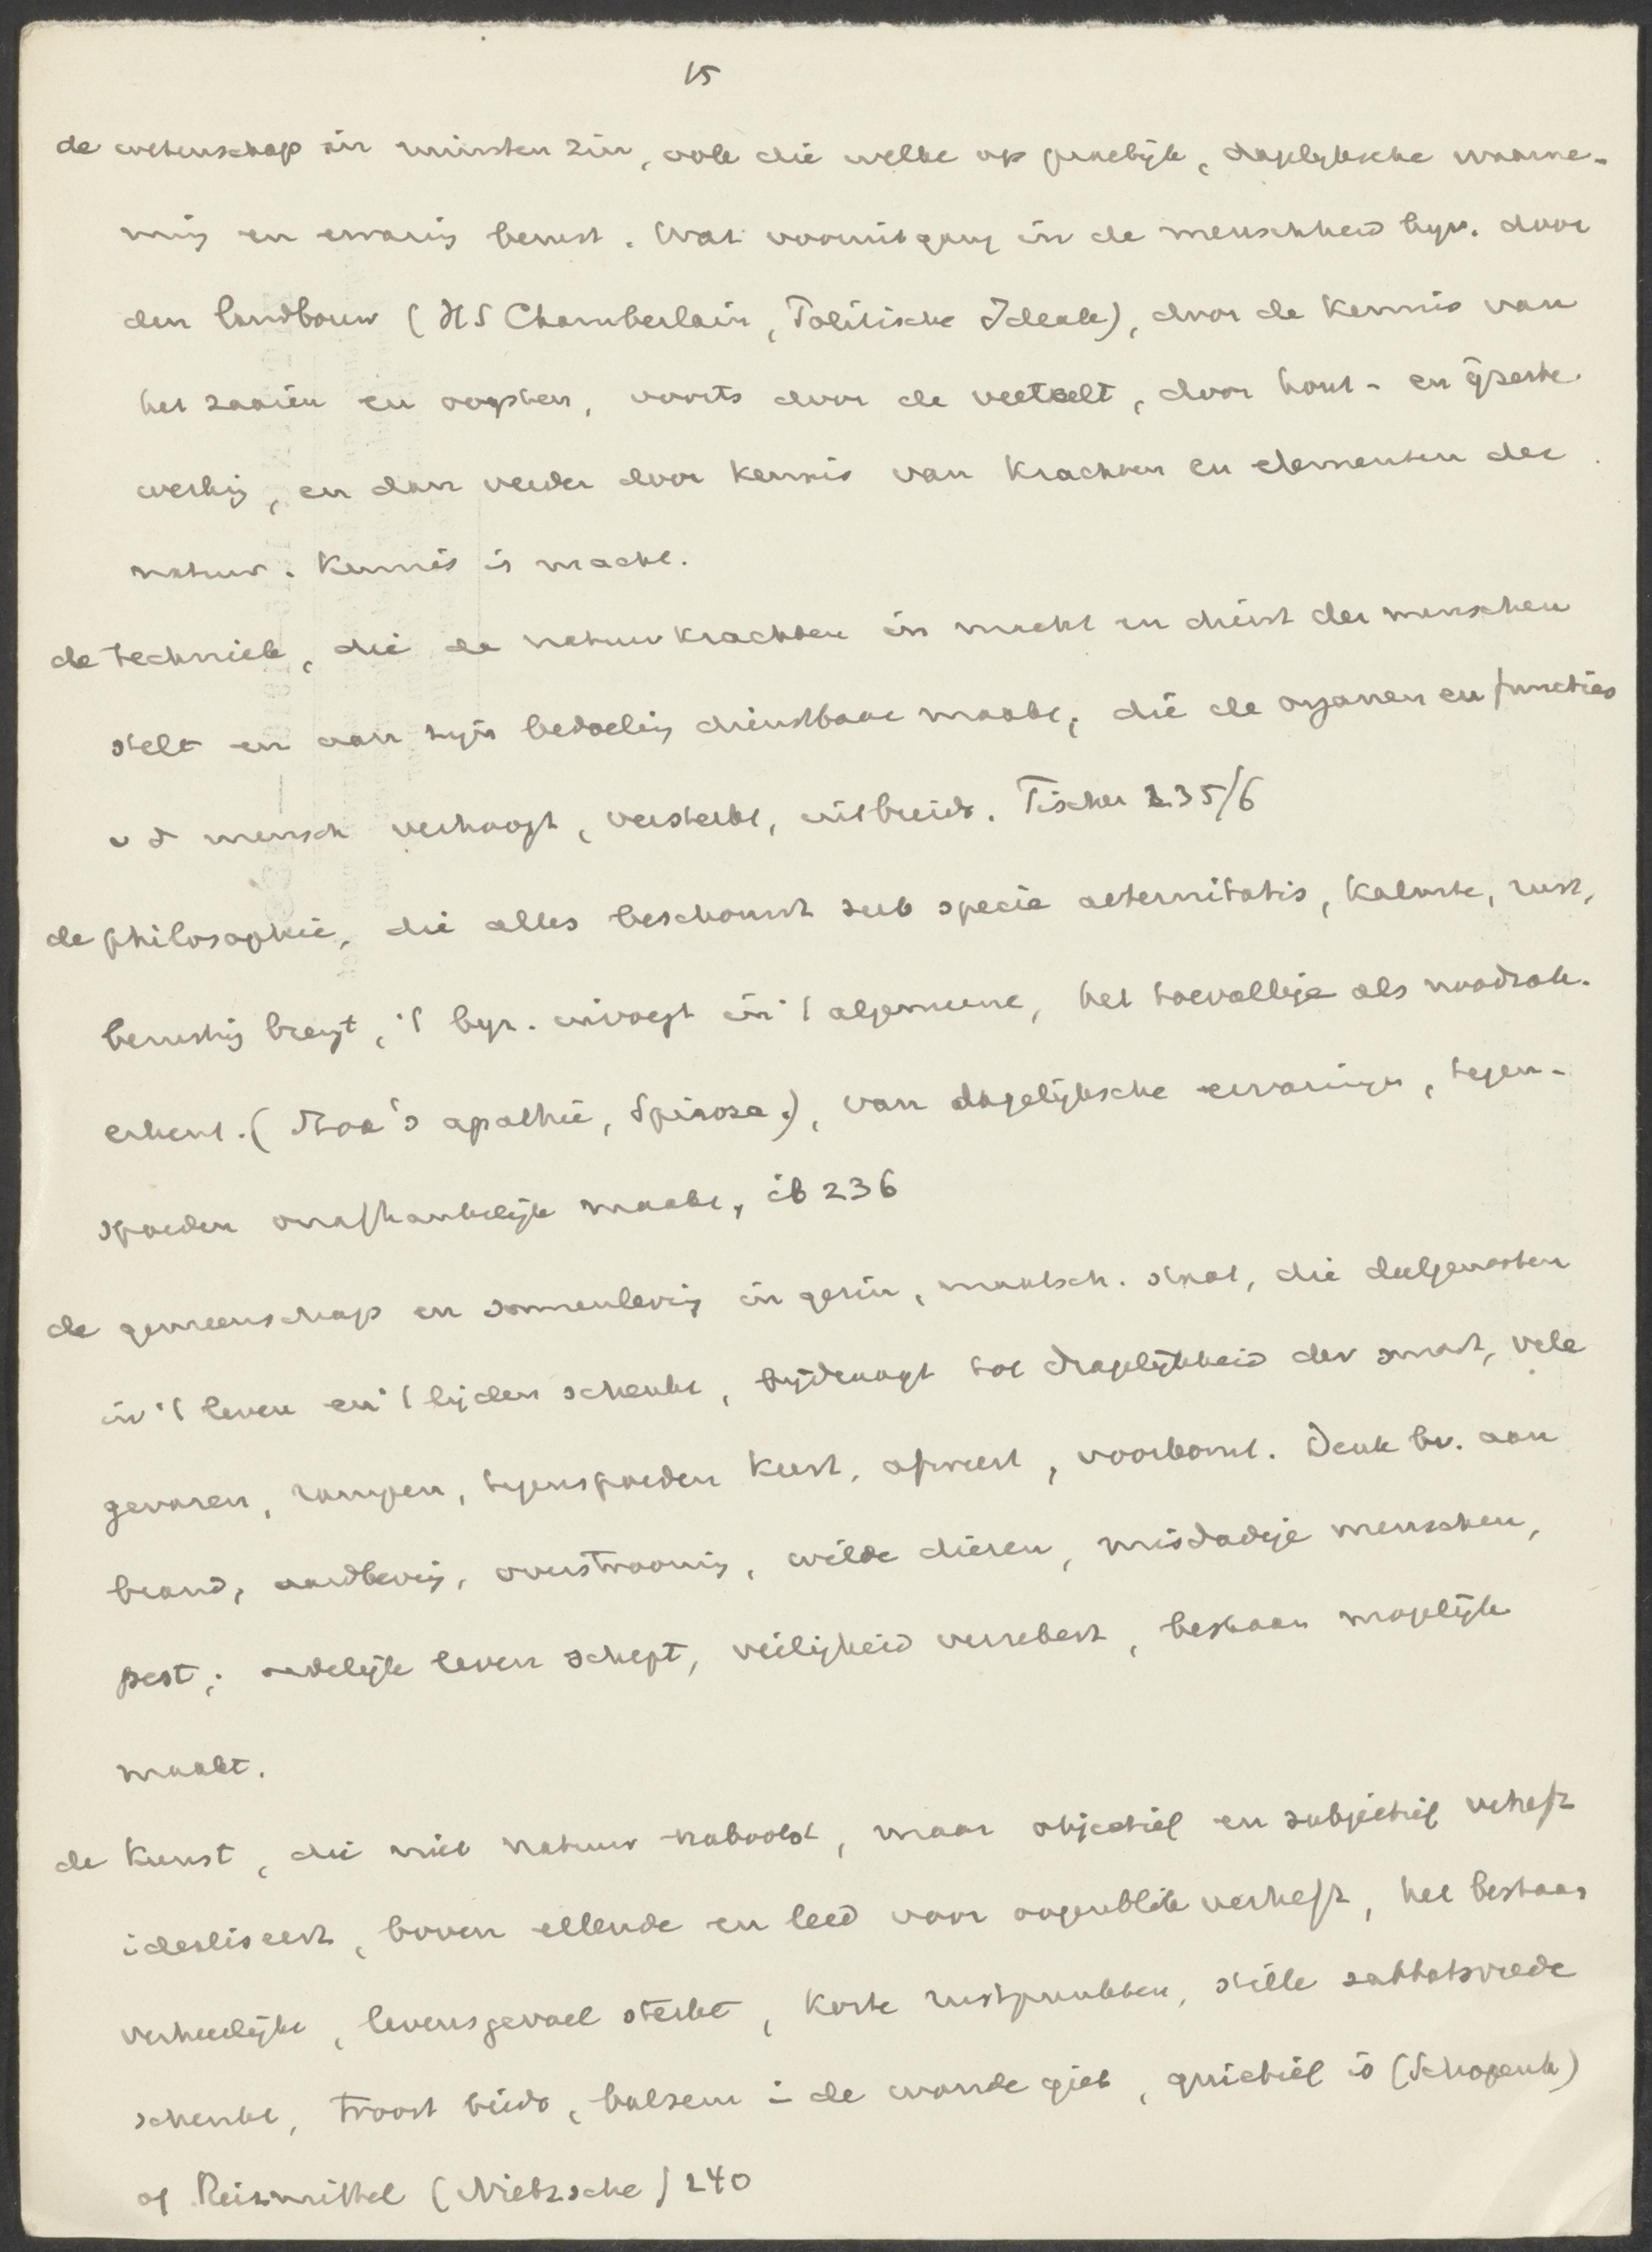 15
de wetenschap in ruimsten zin, ook die welke op gewelijk, dagelijksche waarne-
ming en ervaring berust. Wat vooruitgang in de menschheid bijv. door
den landbouw (HS Chamberlain, Politische Ideale), door de kennis van
het zaaien en oogsten, voorts door de veeteelt, door hout- en ijzerbe-
werking, en dan verder door kennis van krachten en elementen der
natuur. Kennis is macht.
de techniek, die de natuurkrachten in macht en dienst der menschen
stelt en aan zijn bedoeling dienstbaar maakt, die de organen en functies
v d mensch verhoogt, versterkt, uitbreidt. Tischer 235/6
de philosophie, die alles beschouwt sub specie aeternitatis, kalmte, rust,
berusting brengt, 't bijz. invoegt in 't algemeene, het toevallige als noodzak.
erkent. (Stoa's apathie, Spinoza.), van dagelijksche ervaringen, tegen-
spoeden onafhankelijk maakt, ib 236
de gemeenschap en samenleving in gezin, maatsch. staat, die deelgenooten
in 't leven en 't lijden schenkt, bijdraagt tot dragelijkheid der smart, vele
gevaren, rampen, tegenspoeden keert, afweert, voorkomt. Denk bv. aan
brand, aardbeving, overstrooming, wilde dieren, misdadige menschen,
pest; redelijk leven schept, veiligheid verzekert, bestaan mogelijk
maakt.
de kunst, die niet natuur nabootst, maar objectief en subjectief verheft
idealiseert, boven ellende en leed voor oogenblik verheft, het bestaan
verheerlijkt, levensgevoel sterkt, korte rustpunkten, stille sabbatsvrede
schenkt, troost biedt, balsem in de wonde giet, quietief is (Schopenh)
of Reizmittel (Nietzsche) 240